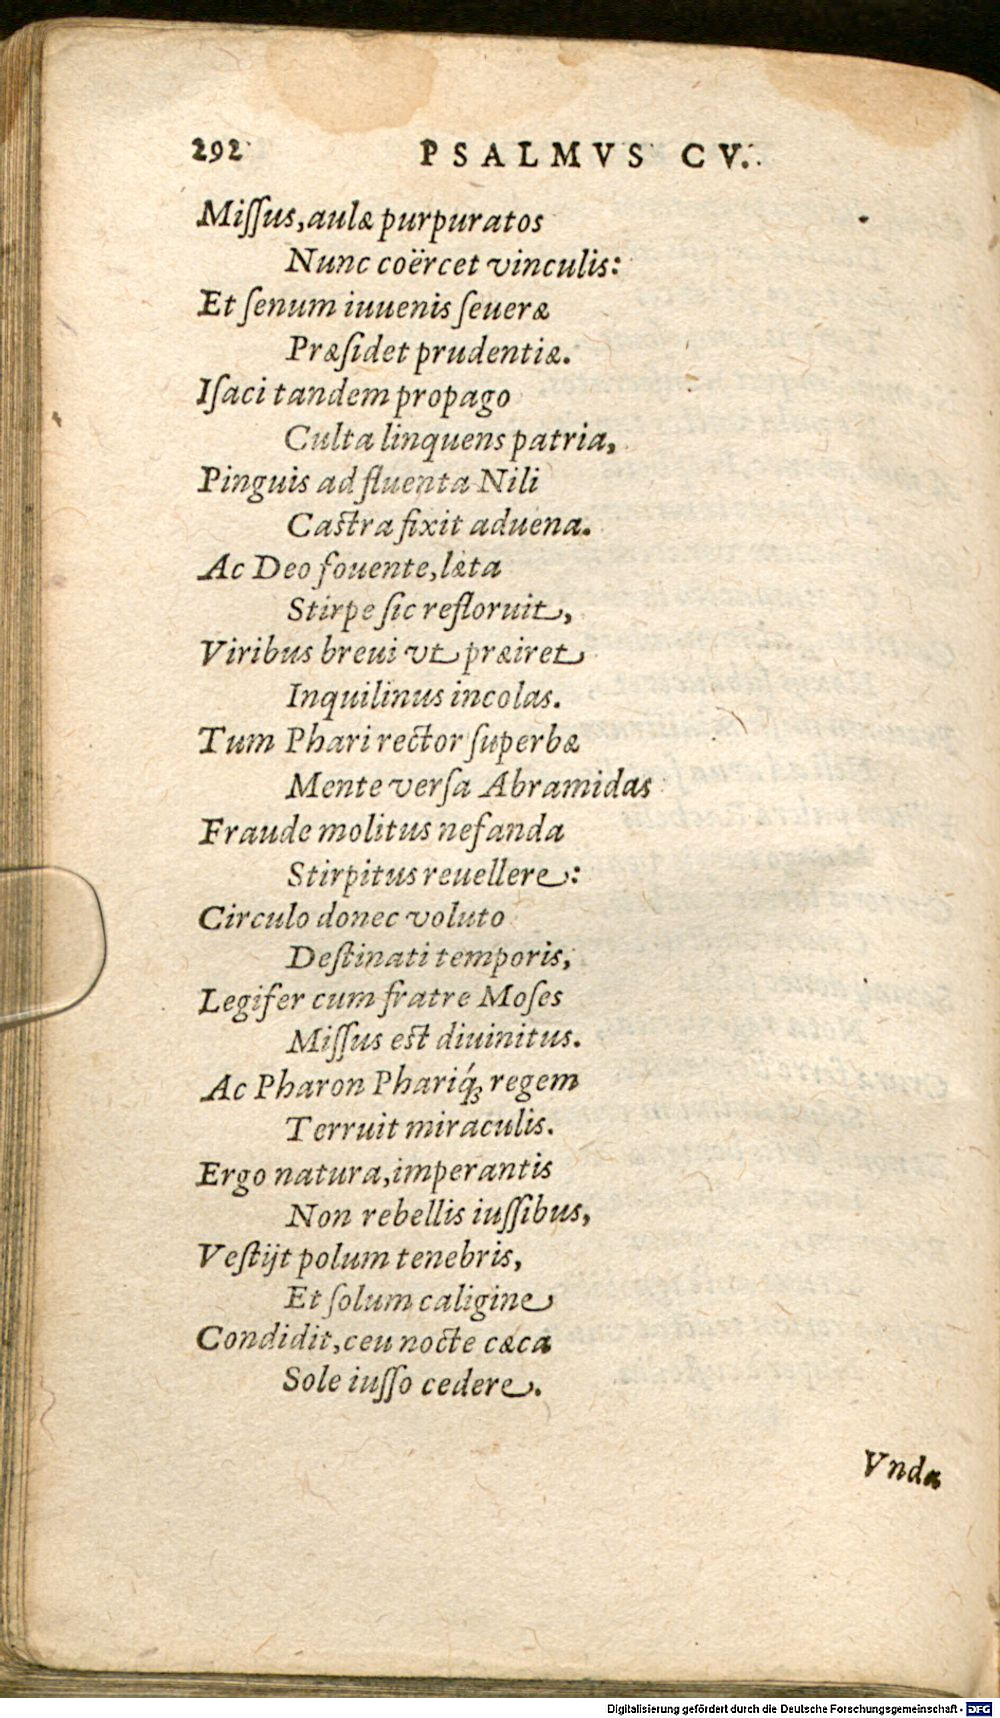 292 PSALMVS CV.
Miſſus, aulæ purpuratos
Nunc coërcet vinculis:
Et ſenum iuuenis ſeueræ
Præſidet prudentiæ.
Iſaci tandem propago
Culta linquens patria,
Pinguis ad fluenta Nili
Caſtra fixit aduena.
Ac Deo fouente, læta
Stirpe ſic refloruit,
Viribus breui vt præiret
Inquilinus incolas.
Tum Phari rector ſuperbæ
Mente verſa Abramidas
Fraude molitus nefanda
Stirpitus reuellere:
Circulo donec voluto
Deſtinati temporis,
Legifer cum fratre Moſes
Miſſus eſt diuinitus.
Ac Pharon Phariq́ꝫ regem
Terruit miraculis.
Ergo natura, imperantis
Non rebellis iuſſibus,
Veſtijt polum tenebris,
Et ſolum caligine
Condidit, ceu nocte cæca
Sole iuſſo cedere.
Vnda
Digitalisierung gefördert durch die Deutsche Forschungsgemeinschaft - DFG